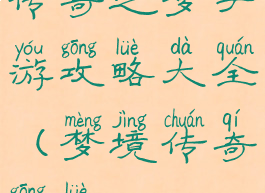 传奇之梦子
yóu gōng lüè dà quán
游攻略大全
mèng jìng chuán qí
(梦境传奇
gōng lüè